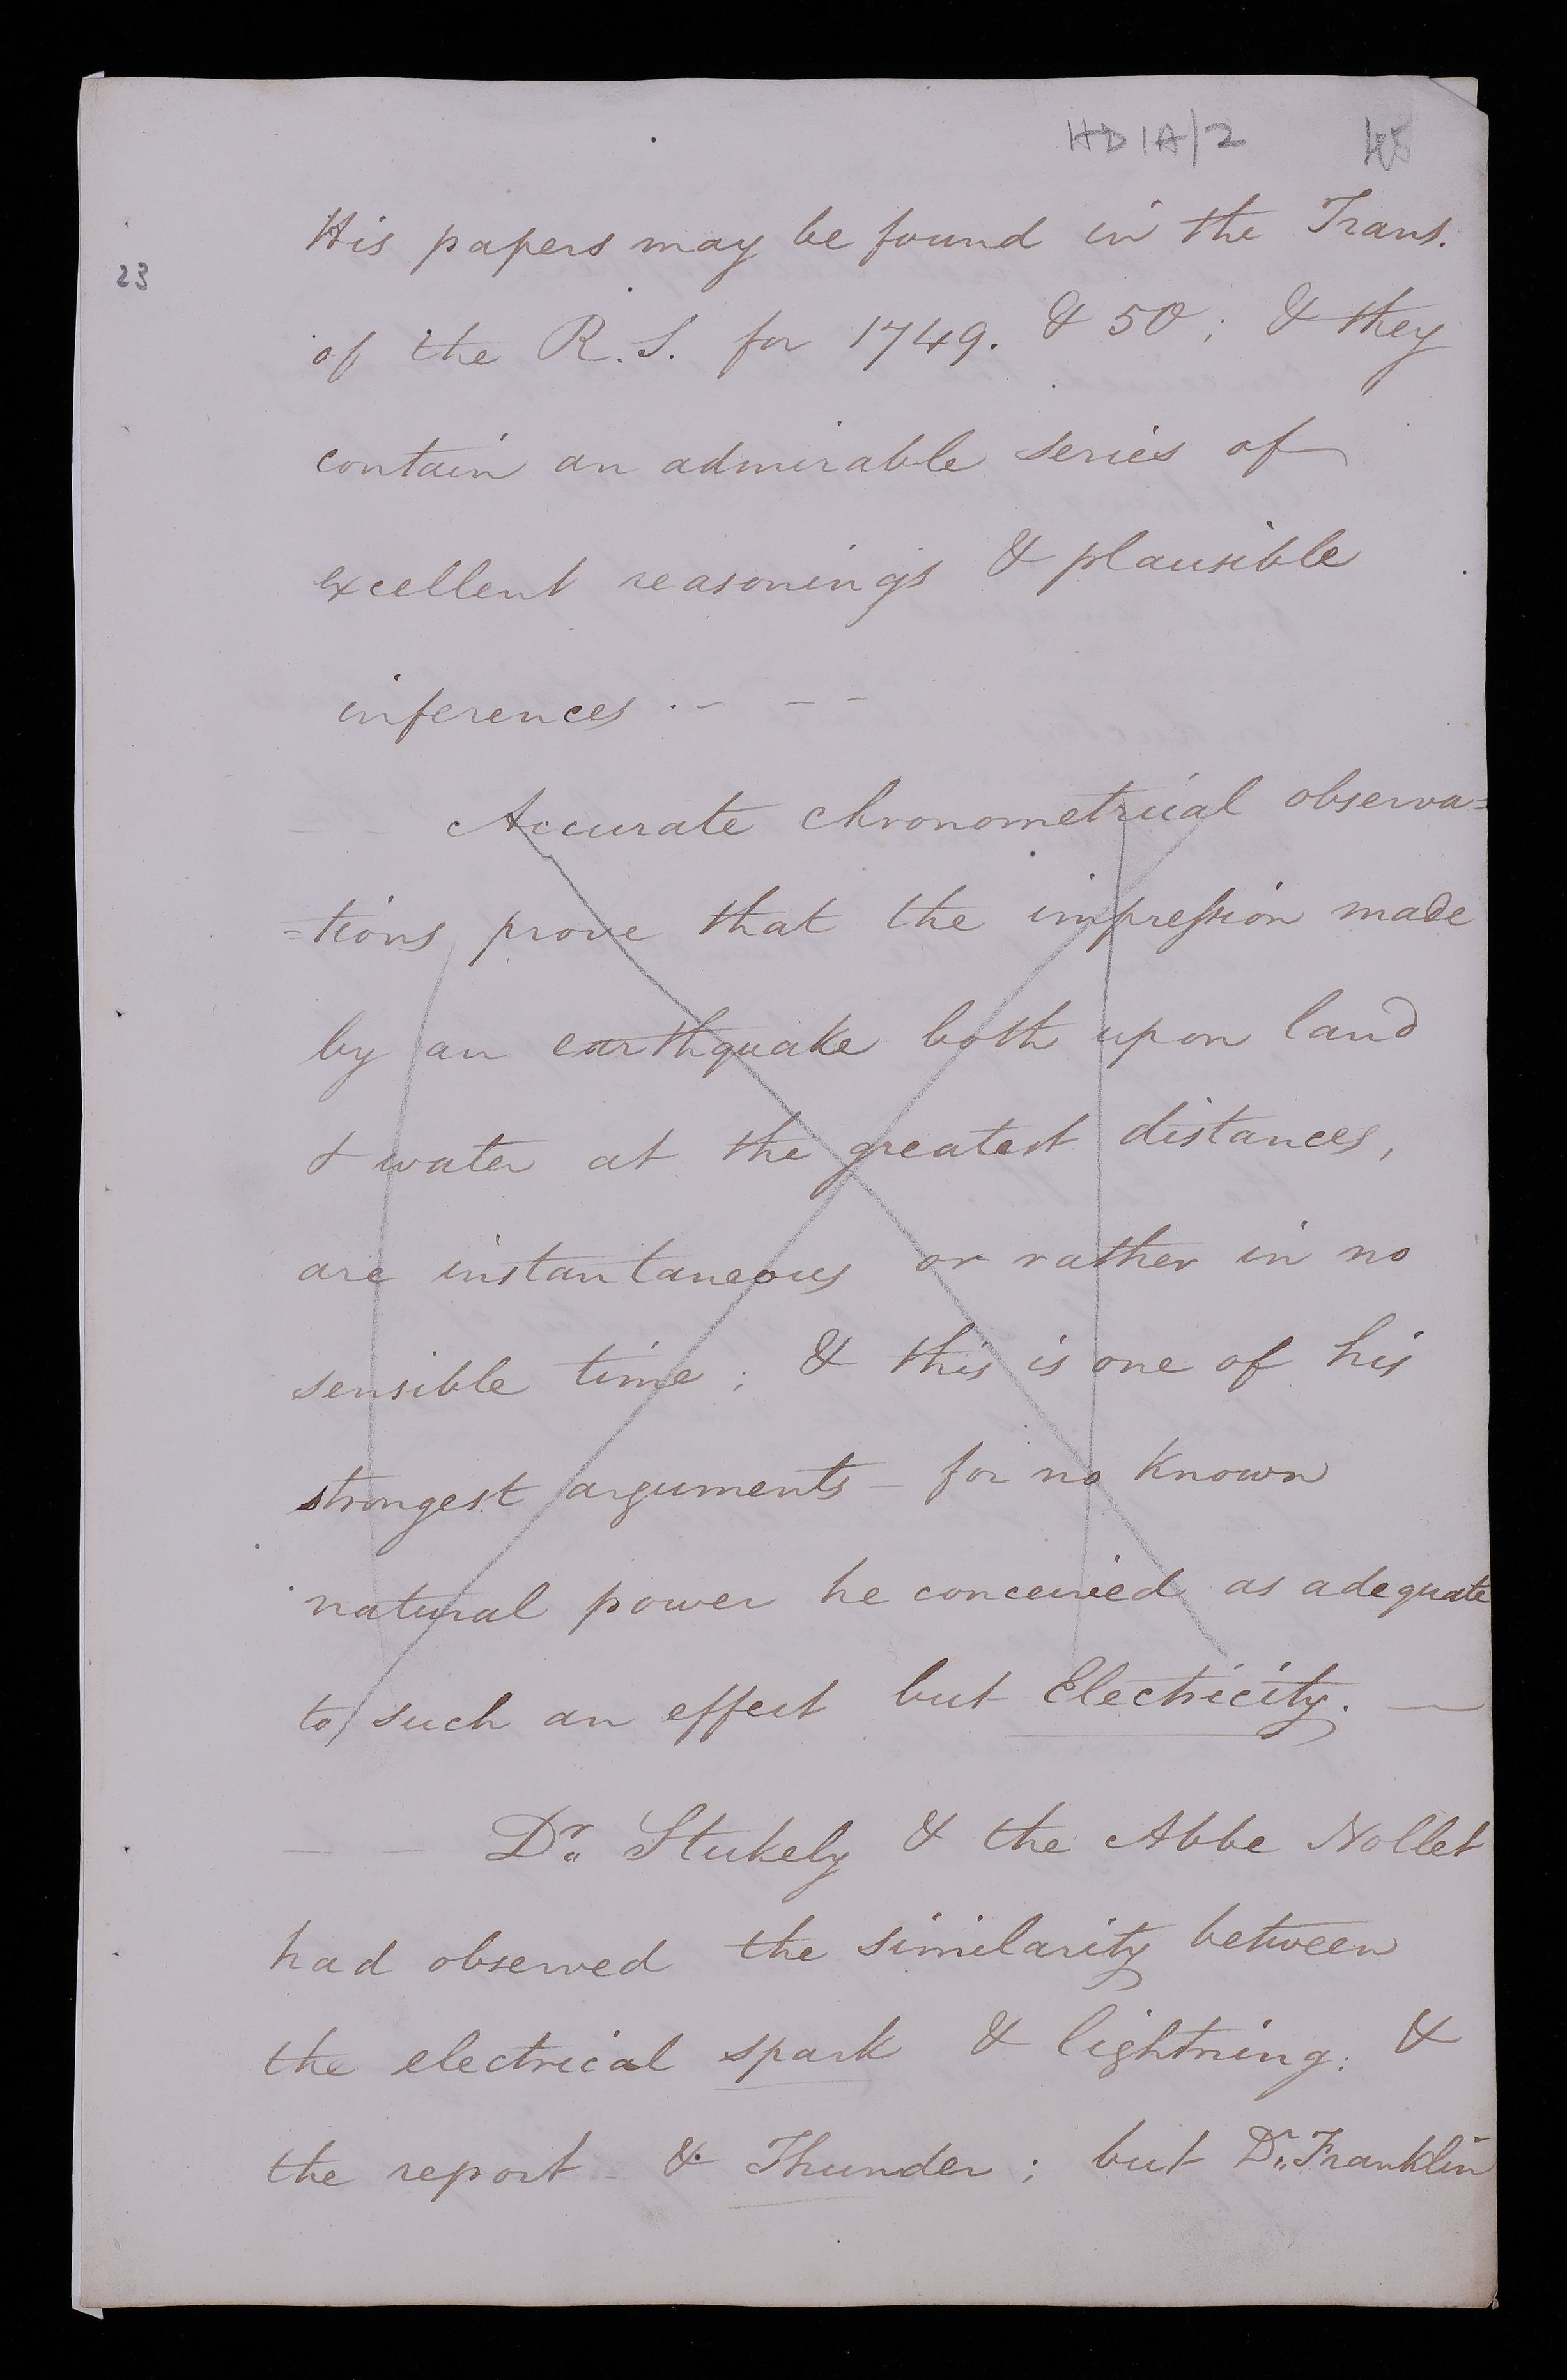 HD/A/2
23
His papers may be found in the Trans.
of the R.S. for 1749. & 50; & they
contain an admirable series of
excellent reasonings & plausible
inferences. - - -
- - Accurate chronometrical observa=
=tions prove that the impression made
by an earthquake both upon land
& water at the greatest distances,
are instantaneous or rather in no
sensible time; & this is one of his
strongest arguments - for no known
natural power he conceived as adequate
to such an effect but Electricity. —
- - Dr. Stukely & the Abbe Nollet
had observed the similarity between
the electrical spark & lightning: &
the report - & Thunder; but Dr. Franklin